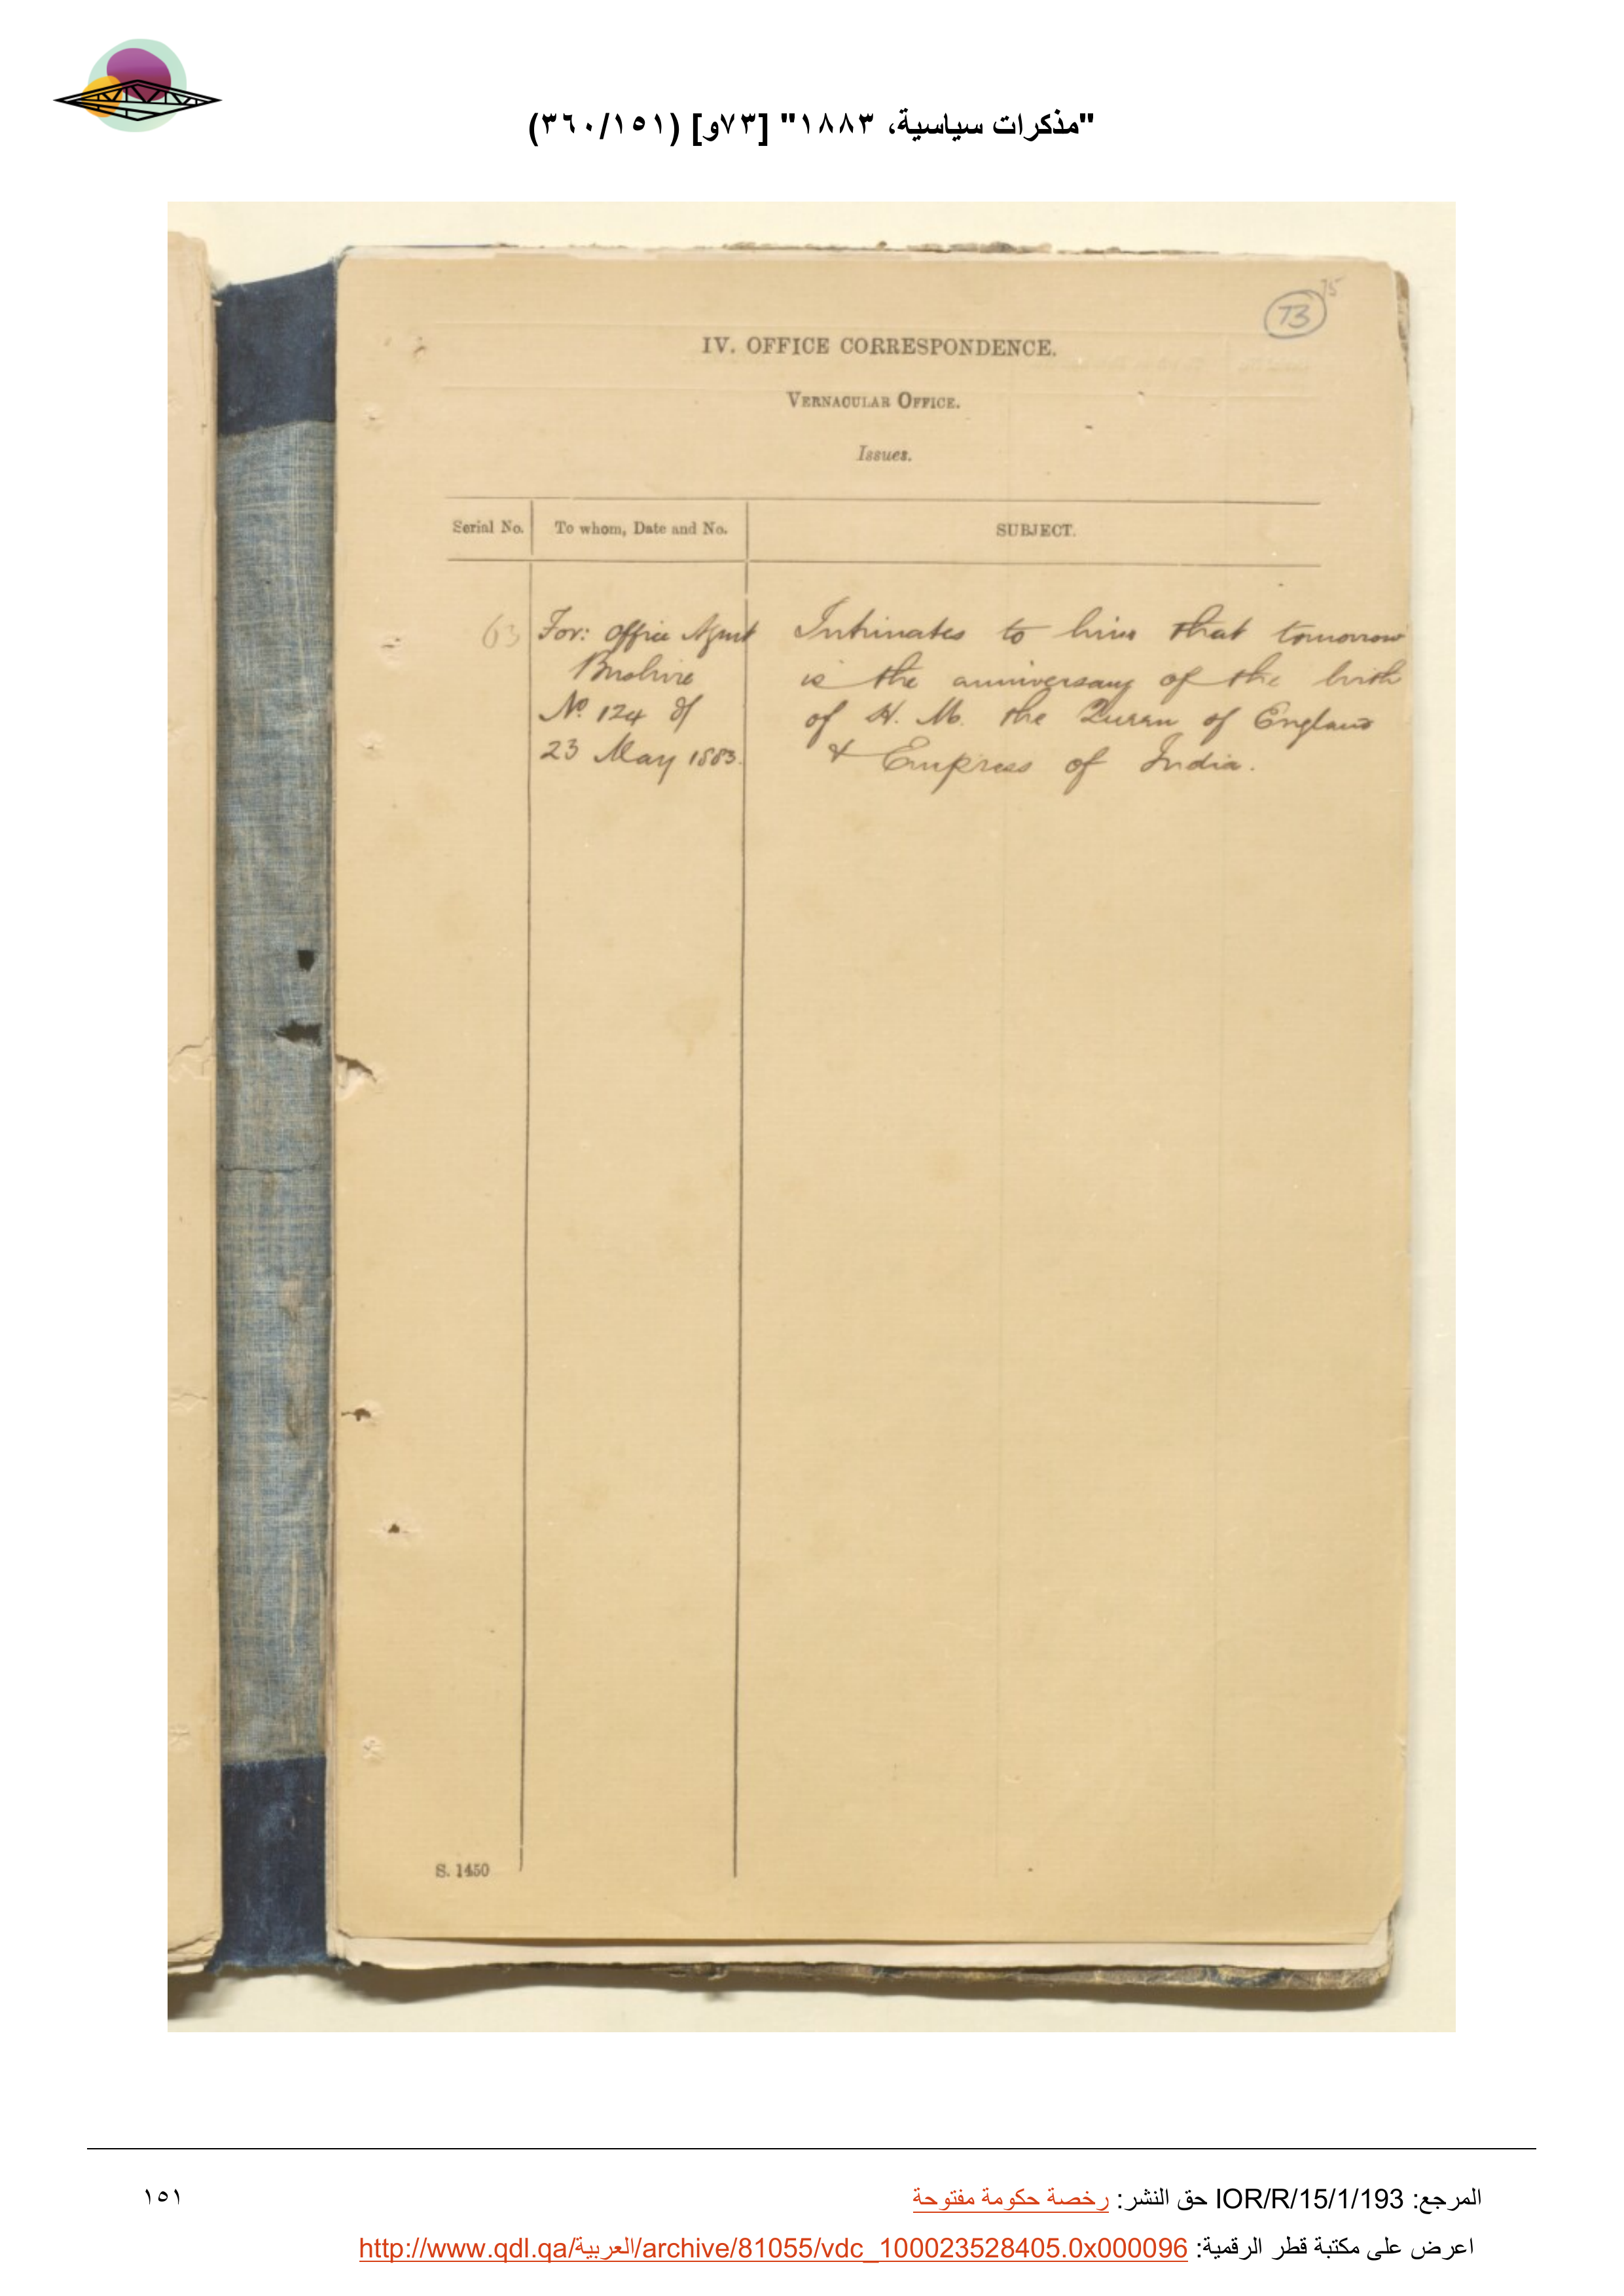 "مذكرات سياسية، ١٨٨٣" [٧٣و] (٣٦٠/١٥١)
75
73
IV. OFFICE CORRESPONDENCE.
VERNACULAR OFFICE.
Issues.
Serial No. To whom, Date and No. SUBJECT.
63 For: Office Agent Intimates to him that tomorrow
Bushire is the anniversary of the birth
No. 124 of of H. M. the Queen of England
23 May 1883. & Empress of India.
S. 1450
المرجع: IOR/R/15/1/193 حق النشر: رخصة حكومة مفتوحة ١٥١
اعرض على مكتبة قطر الرقمية: http://www.qdl.qa/العربية/archive/81055/vdc_100023528405.0x000096